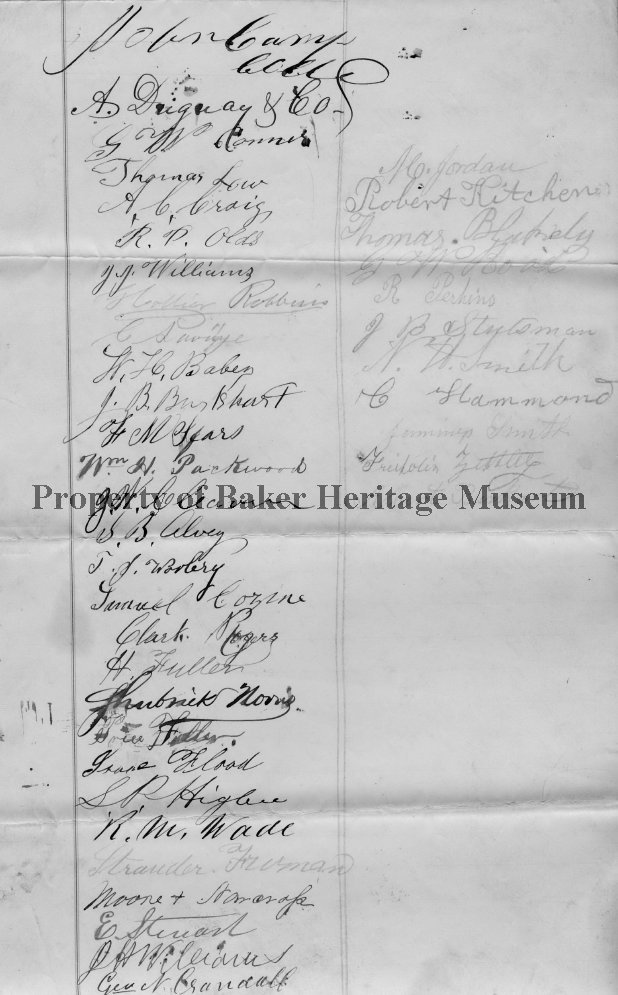 John Camp
A. Duguay & Co
G W Conner
Thomas Low
A. C. Craig
R. P. Olds
J. J. Williams
Robbins
C Savage
W. H. Baber
J. B. Burkhart
F M Spars
Wm H. Packwood
S. B. Alvey
T. J.
Samuel Cozine
Clark Rogers
H. Fuller
Shubrick Norris
Fuller
Isaac Flood
S R Higbee
R. M. Wade
Strauder Froman
Moore & Norcross
E Stewart
J H Williams
Geo. N. Crandall
M. Jordan
Robert Kitchen
Thomas Blakely
G W
R Perkins
J B Stutsman
N. W. Smith
C Hammond
Jennings Smith
Fridolin
Property of Baker Heritage Museum